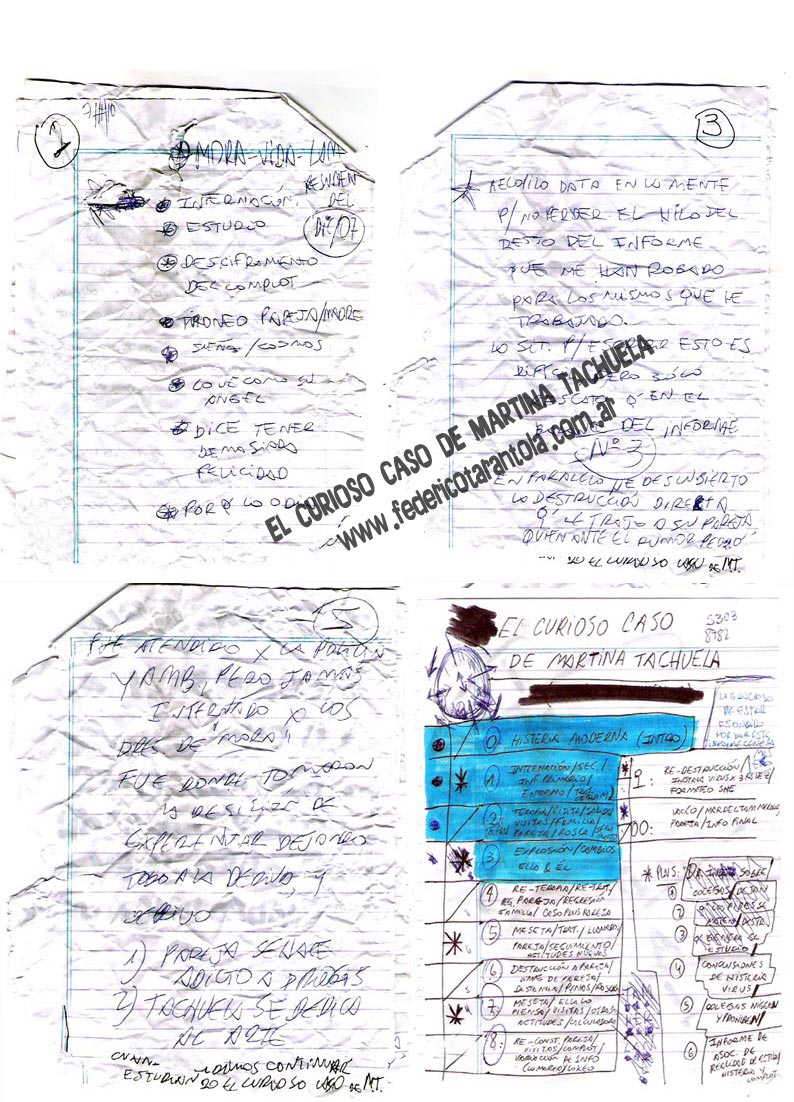 1
7/11/10
MORA-VIDA-
RESUMEN
DEL
DIC/07
INTERNACIÓN.
ESTUDIO
DESCIFRAMENTO
DEL COMPLOT
TIRONEO PAREJA/MADRE
SUEÑOS/COSMOS
LO VE COMO SU
ANGEL
DICE TENER
DEMASIADA
FELICIDAD
POR Q LO ODIA
3
RECOPILO DATA EN LA MENTE
P/NO PERDER EL HILO DEL
RESTO DEL INFORME
QUE ME HAN ROBADO
PARA LOS MISMOS QUE HE
TRABAJADO.
LO SCT. P/ESCRIBIR ESTO ES
DIFICIL PERO SÓLO
RESCATO Q' EN EL
DEL INFORME
Nº3
EN PARALELO HE DESCUBIERTO
LA DESTRUCCIÓN DIRECTA
Q' LE TRAJO A SU PAREJA
QUIEN ANTE EL RUMOR PERDIÓ
DO EL CURIOSO CASO DE MT.
EL CURIOSO CASO DE MARTINA TACHUELA
www.federicotarantola.com.ar
5
FUE ATENDIDO X LA POLICIA
Y AMB, PERO JAMÁS
INTERNADO X LOS
DRES DE "MORA"
FUE DONDE TOMARON
LA DESICIÓN DE
EXPERIMENTAR DEJANDO
TODO A LA DERIVA, Y
DERIVO
1) PAREJA SE HACE
ADICTO A DROGAS
2) TACHUELA SE DEDICA
AL ARTE
CONTINUAR
ESTUDIANDO EL CURIOSO CASO DE MT.
EL CURIOSO CASO
DE MARTINA TACHUELA
5303
8782
LA GRACIOSA
DE ESTAR
ESCONDIDO
POR QUE ESTE
0. HISTERIA MODERNA (INTRO)
1) INTERNACIÓN/SEC./
INF. PRIMARIO/
ENTORNO/
2. TERAPIA/VISITA/SALIDA
VISITAS/FAMILIA/
PAREJA/ROSCA/
3) EXPLOSIÓN/CAMBIOS
ELLA & ÉL
4 RE-TERAPIA/RE-TRAT./
REG. PAREJA/REGRESIÓN
FAMILIA/CASO PLUS PAREJA
5 MESETA/TRAT./LLAMADO
PAREJA/SEGUIMIENTO/
ACTITUDES NUEVAS
6 DESTRUCCIÓN A PAREJA/
DE PAREJA/
DISTANCIA/
7. MESETA/ELLA LO
PIENSA/VISITAS/OTRAS
ACTITUDES/CALCULADORA
8. RE-CONST. PAREJA/
VISITAS/COMPLOT/
VARIACIÓN DE INFO
9: RE-DESTRUCCIÓN/
INSTALA VIRUS X 3RA VEZ/
FORMATEO SHE
00: VACÍO/MAR DEL TA
PAREJA/INFO FINAL
PLUS: SOBRE
1 COLEGAS/DEJAN
2
3 GENERA EL
ESTUDIO
4 CONCLUSIONES
DE HISTERIA
VIRUS
5 COLEGAS NIEGAN
Y PROHIBEN
6 INFORME DE
ASOC. DE
REALIDAD DE ESTUDIO/
HISTERIA Y
COMPLOT